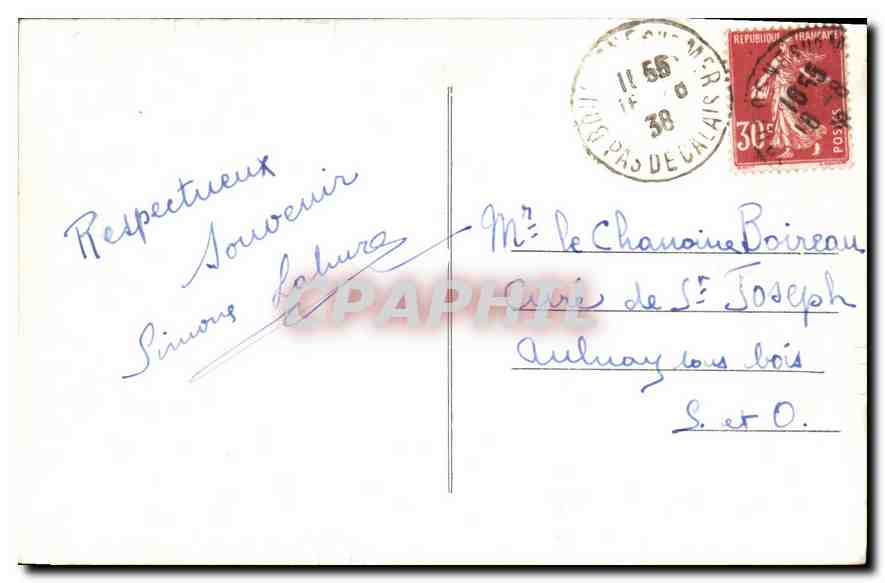 Respectueux
Souvenir
Simone Lahure
BOULOGNE SUR MER
55
38
PAS DE CALAIS
REPUBLIQUE FRANÇAISE
30c
POSTES
18 55
Mr le Chanoine Boireau
Curé de St Joseph
Aulnay sous bois
S. et O.
CPAPHIL